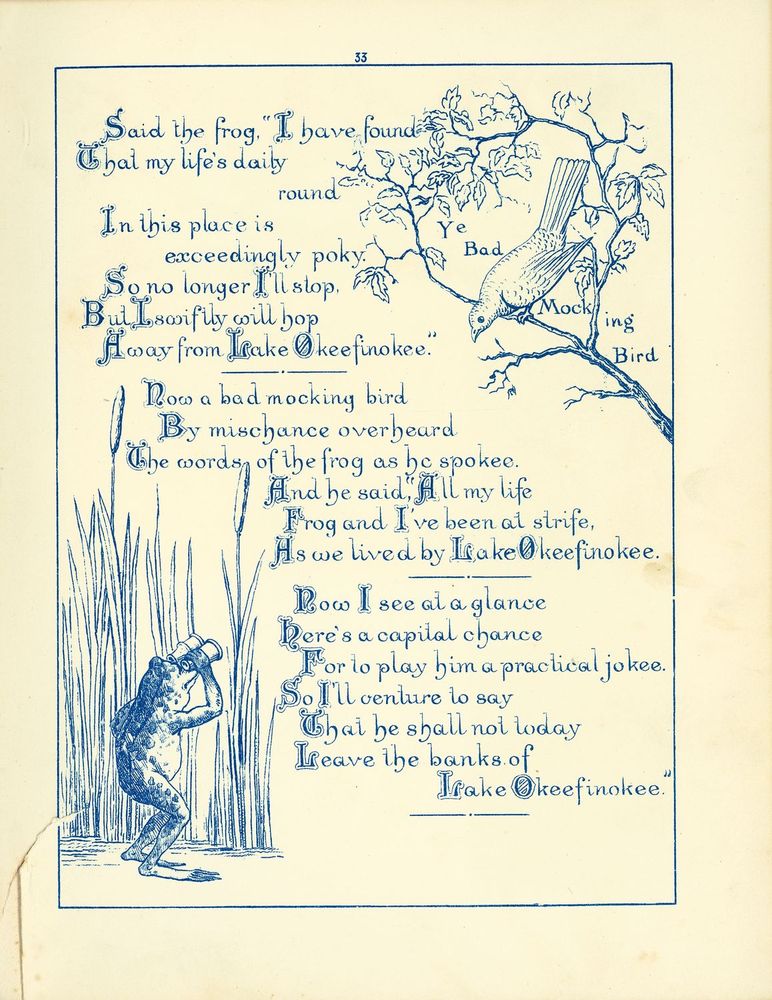 33
Said the frog, "I have found
That my life's daily
round
In this place is
exceedingly poky.
So no longer I'll stop,
But I swiftly will hop
Away from Lake Okeefinokee."
Ye
Bad
Mock
ing
Bird
Now a bad mocking bird
By mischance overheard
The words of the frog as he spokee.
And he said, "All my life
Frog and I've been at strife,
As we lived by Lake Okeefinokee.
Now I see at a glance
Here's a capital chance
For to play him a practical jokee.
So I'll venture to say
That he shall not today
Leave the banks of
Lake Okeefinokee."